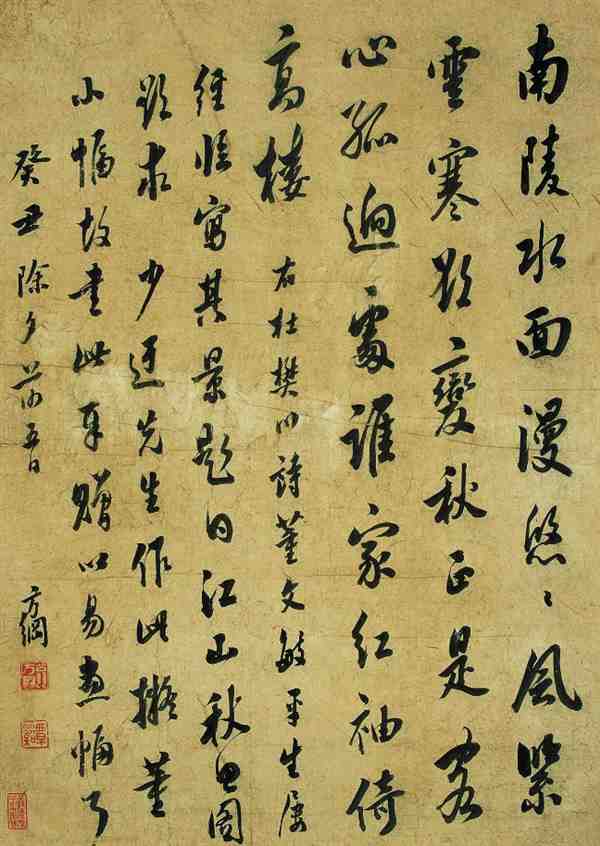 南陵水面漫悠〻風緊
雲寒欲變秋正是客
心孤迥處誰家紅袖倚
高樓 右杜樊川詩董文敏平生屢
經臨寫其景題曰江山秋思圖
欲求少迂先生作此擬董
小幅故書此奉贈以易畫幅
癸丑除夕前五日
方綱